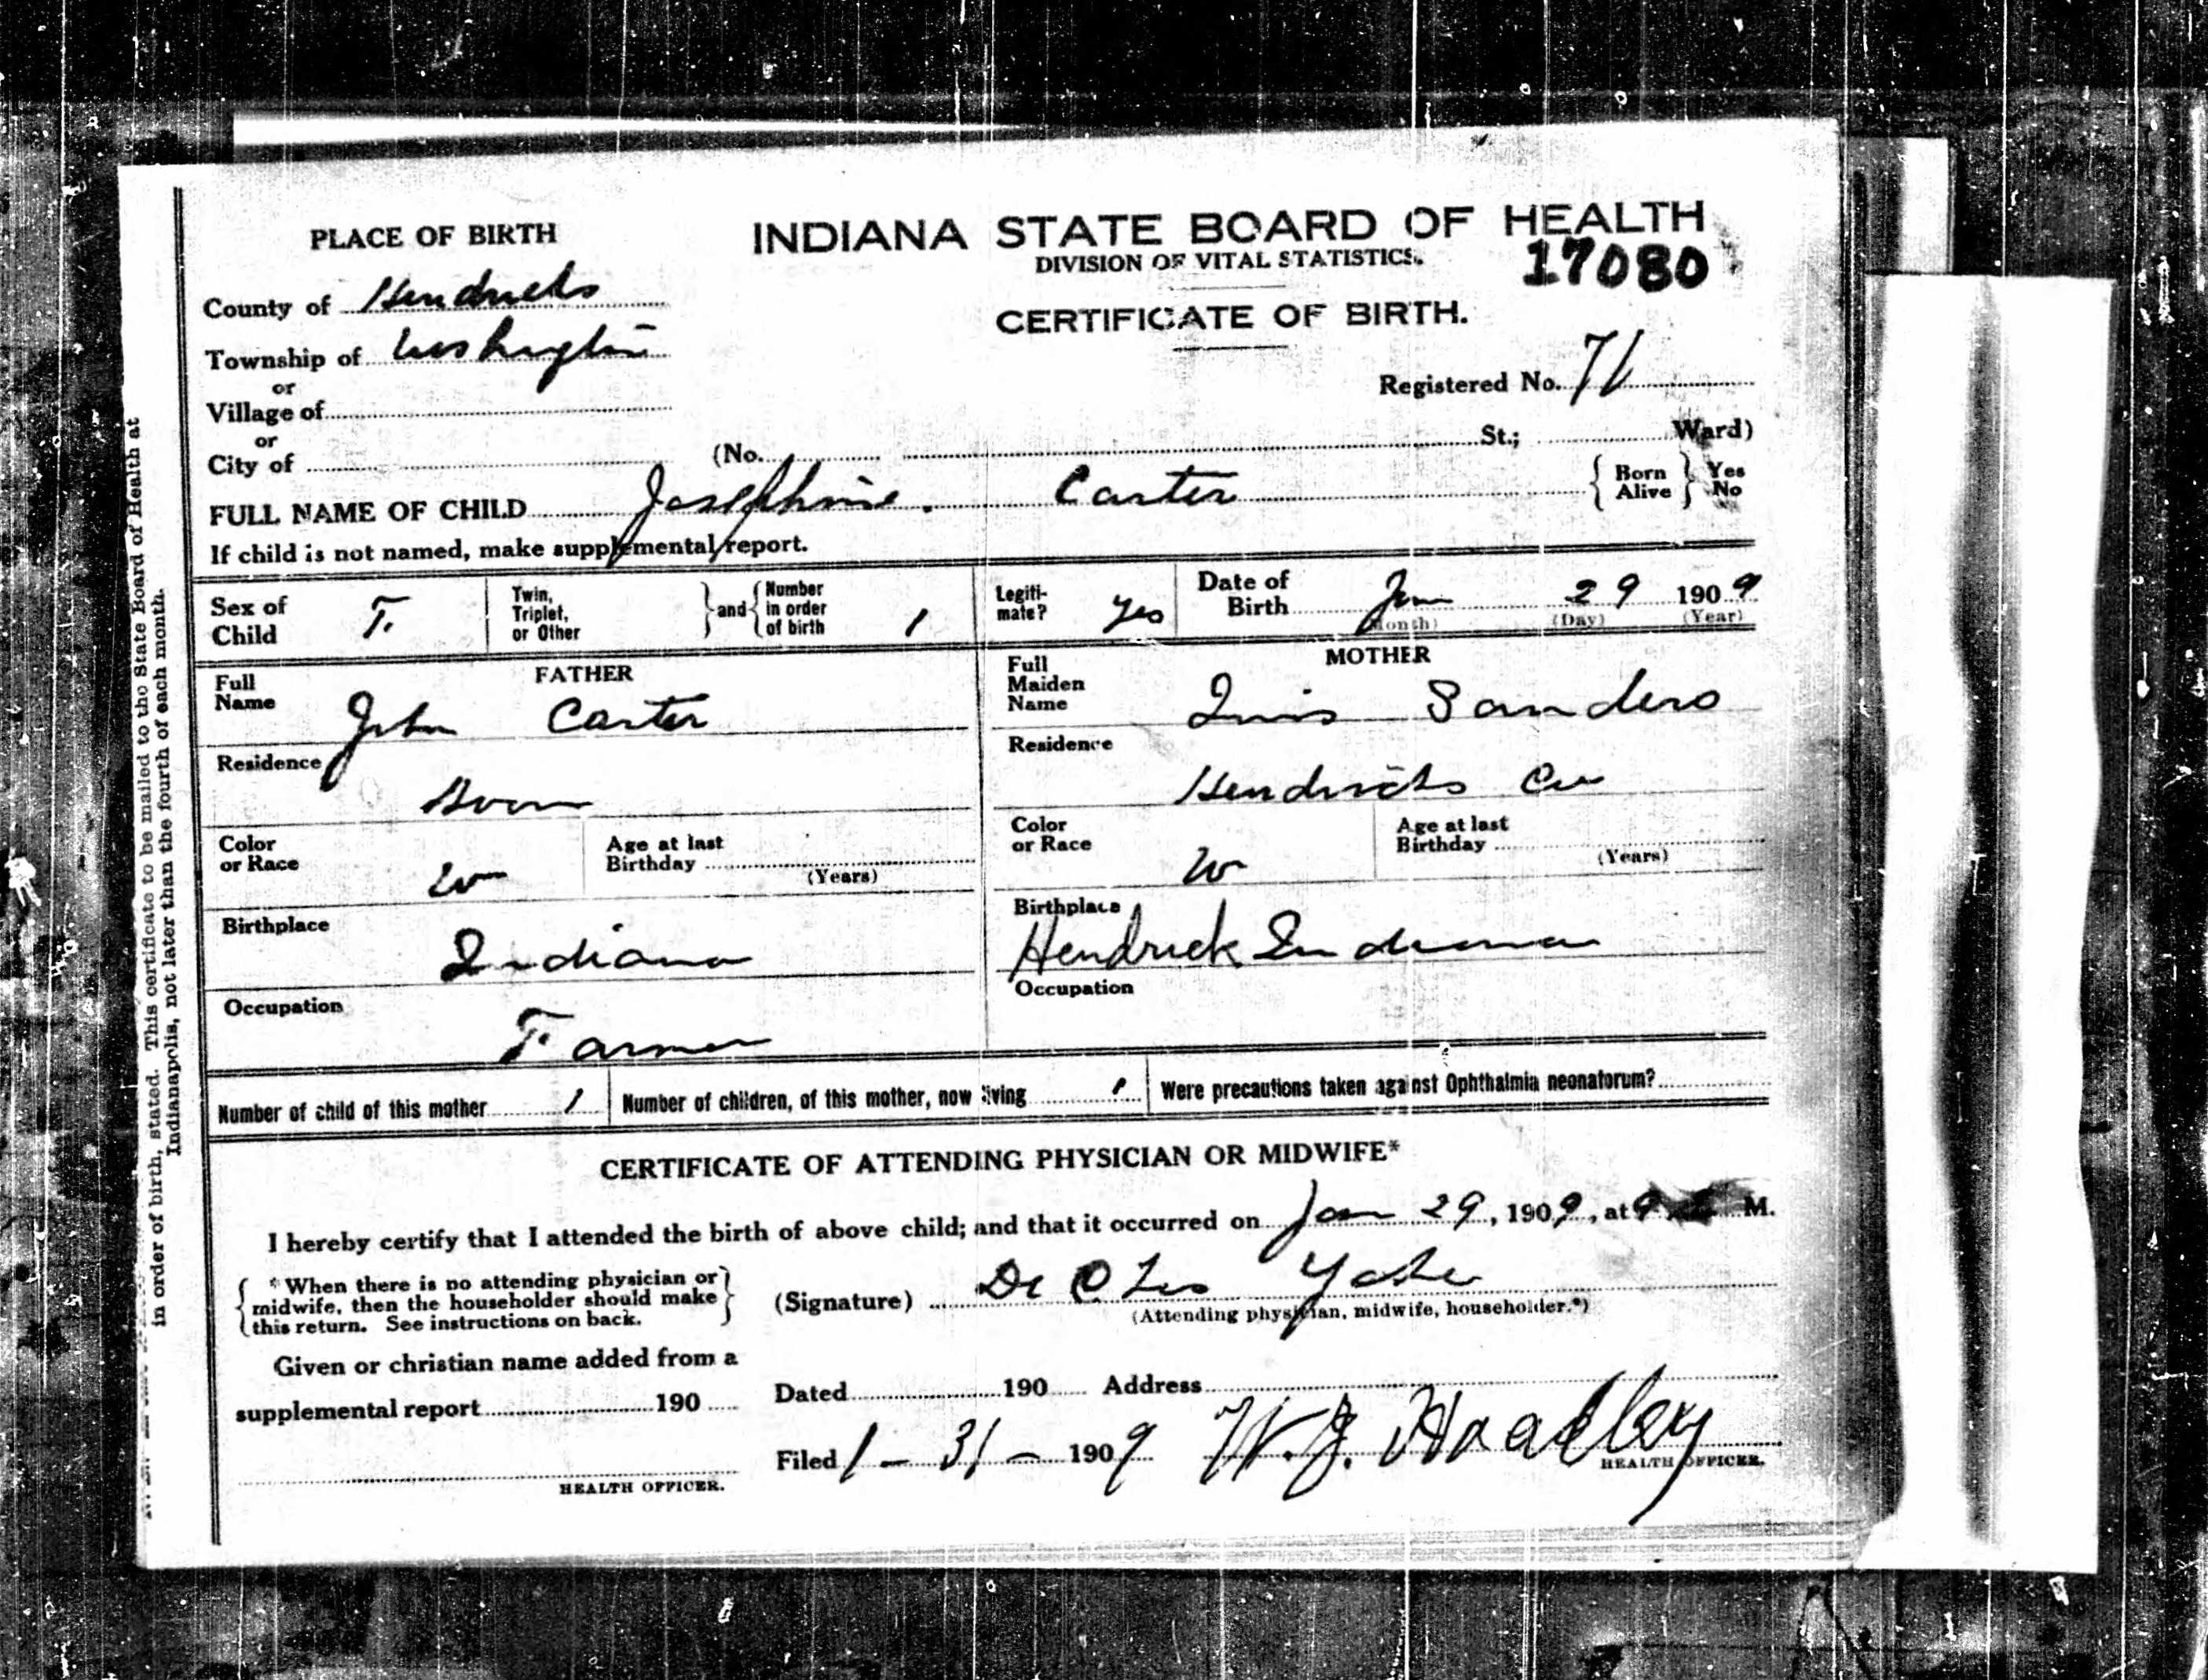 PLACE OF BIRTH
INDIANA STATE BOARD OF HEALTH
DIVISION OF VITAL STATISTICS.
17080
County of Hendricks
CERTIFICATE OF BIRTH.
Township of Washington
or
Registered No. 71
Village of
or
City of (No. St.; Ward)
FULL NAME OF CHILD Josephine Carter { Born Alive } Yes No
If child is not named, make supplemental report.
Sex of Child F. Twin, Triplet, or Other } and { Number in order of birth 1 Legiti-mate? yes Date of Birth Jan 29 1909
(Month) (Day) (Year)
FATHER
Full Name John Carter
Residence
Color or Race W Age at last Birthday (Years)
Birthplace Indiana
Occupation Farmer
MOTHER
Full Maiden Name Sanders
Residence Hendricks Co
Color or Race W Age at last Birthday (Years)
Birthplace Hendrick Indiana
Occupation
Number of child of this mother 1 Number of children, of this mother, now living 1 Were precautions taken against Ophthalmia neonatorum?
CERTIFICATE OF ATTENDING PHYSICIAN OR MIDWIFE*
I hereby certify that I attended the birth of above child; and that it occurred on Jan 29, 1909, at 9 M.
{ * When there is no attending physician or
midwife, then the householder should make
this return. See instructions on back. }
(Signature) Dr
(Attending physician, midwife, householder.*)
Given or christian name added from a
supplemental report 190
HEALTH OFFICER.
Dated 190 Address
Filed 1-31-1909 W. J. Hoadley
HEALTH OFFICER.
in order of birth, stated. This certificate to be mailed to the State Board of Health at
Indianapolis, not later than the fourth of each month.